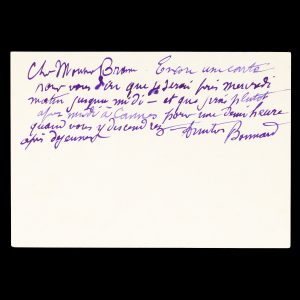 Cher Monsieur Braun – Encore une carte
pour vous dire que je serai pris mercredi
matin jusqu'à midi – et que j'irai plutôt
après midi à Cannes pour une demi heure
quand vous y descendrez Amitiés
après déjeuner Bonnard